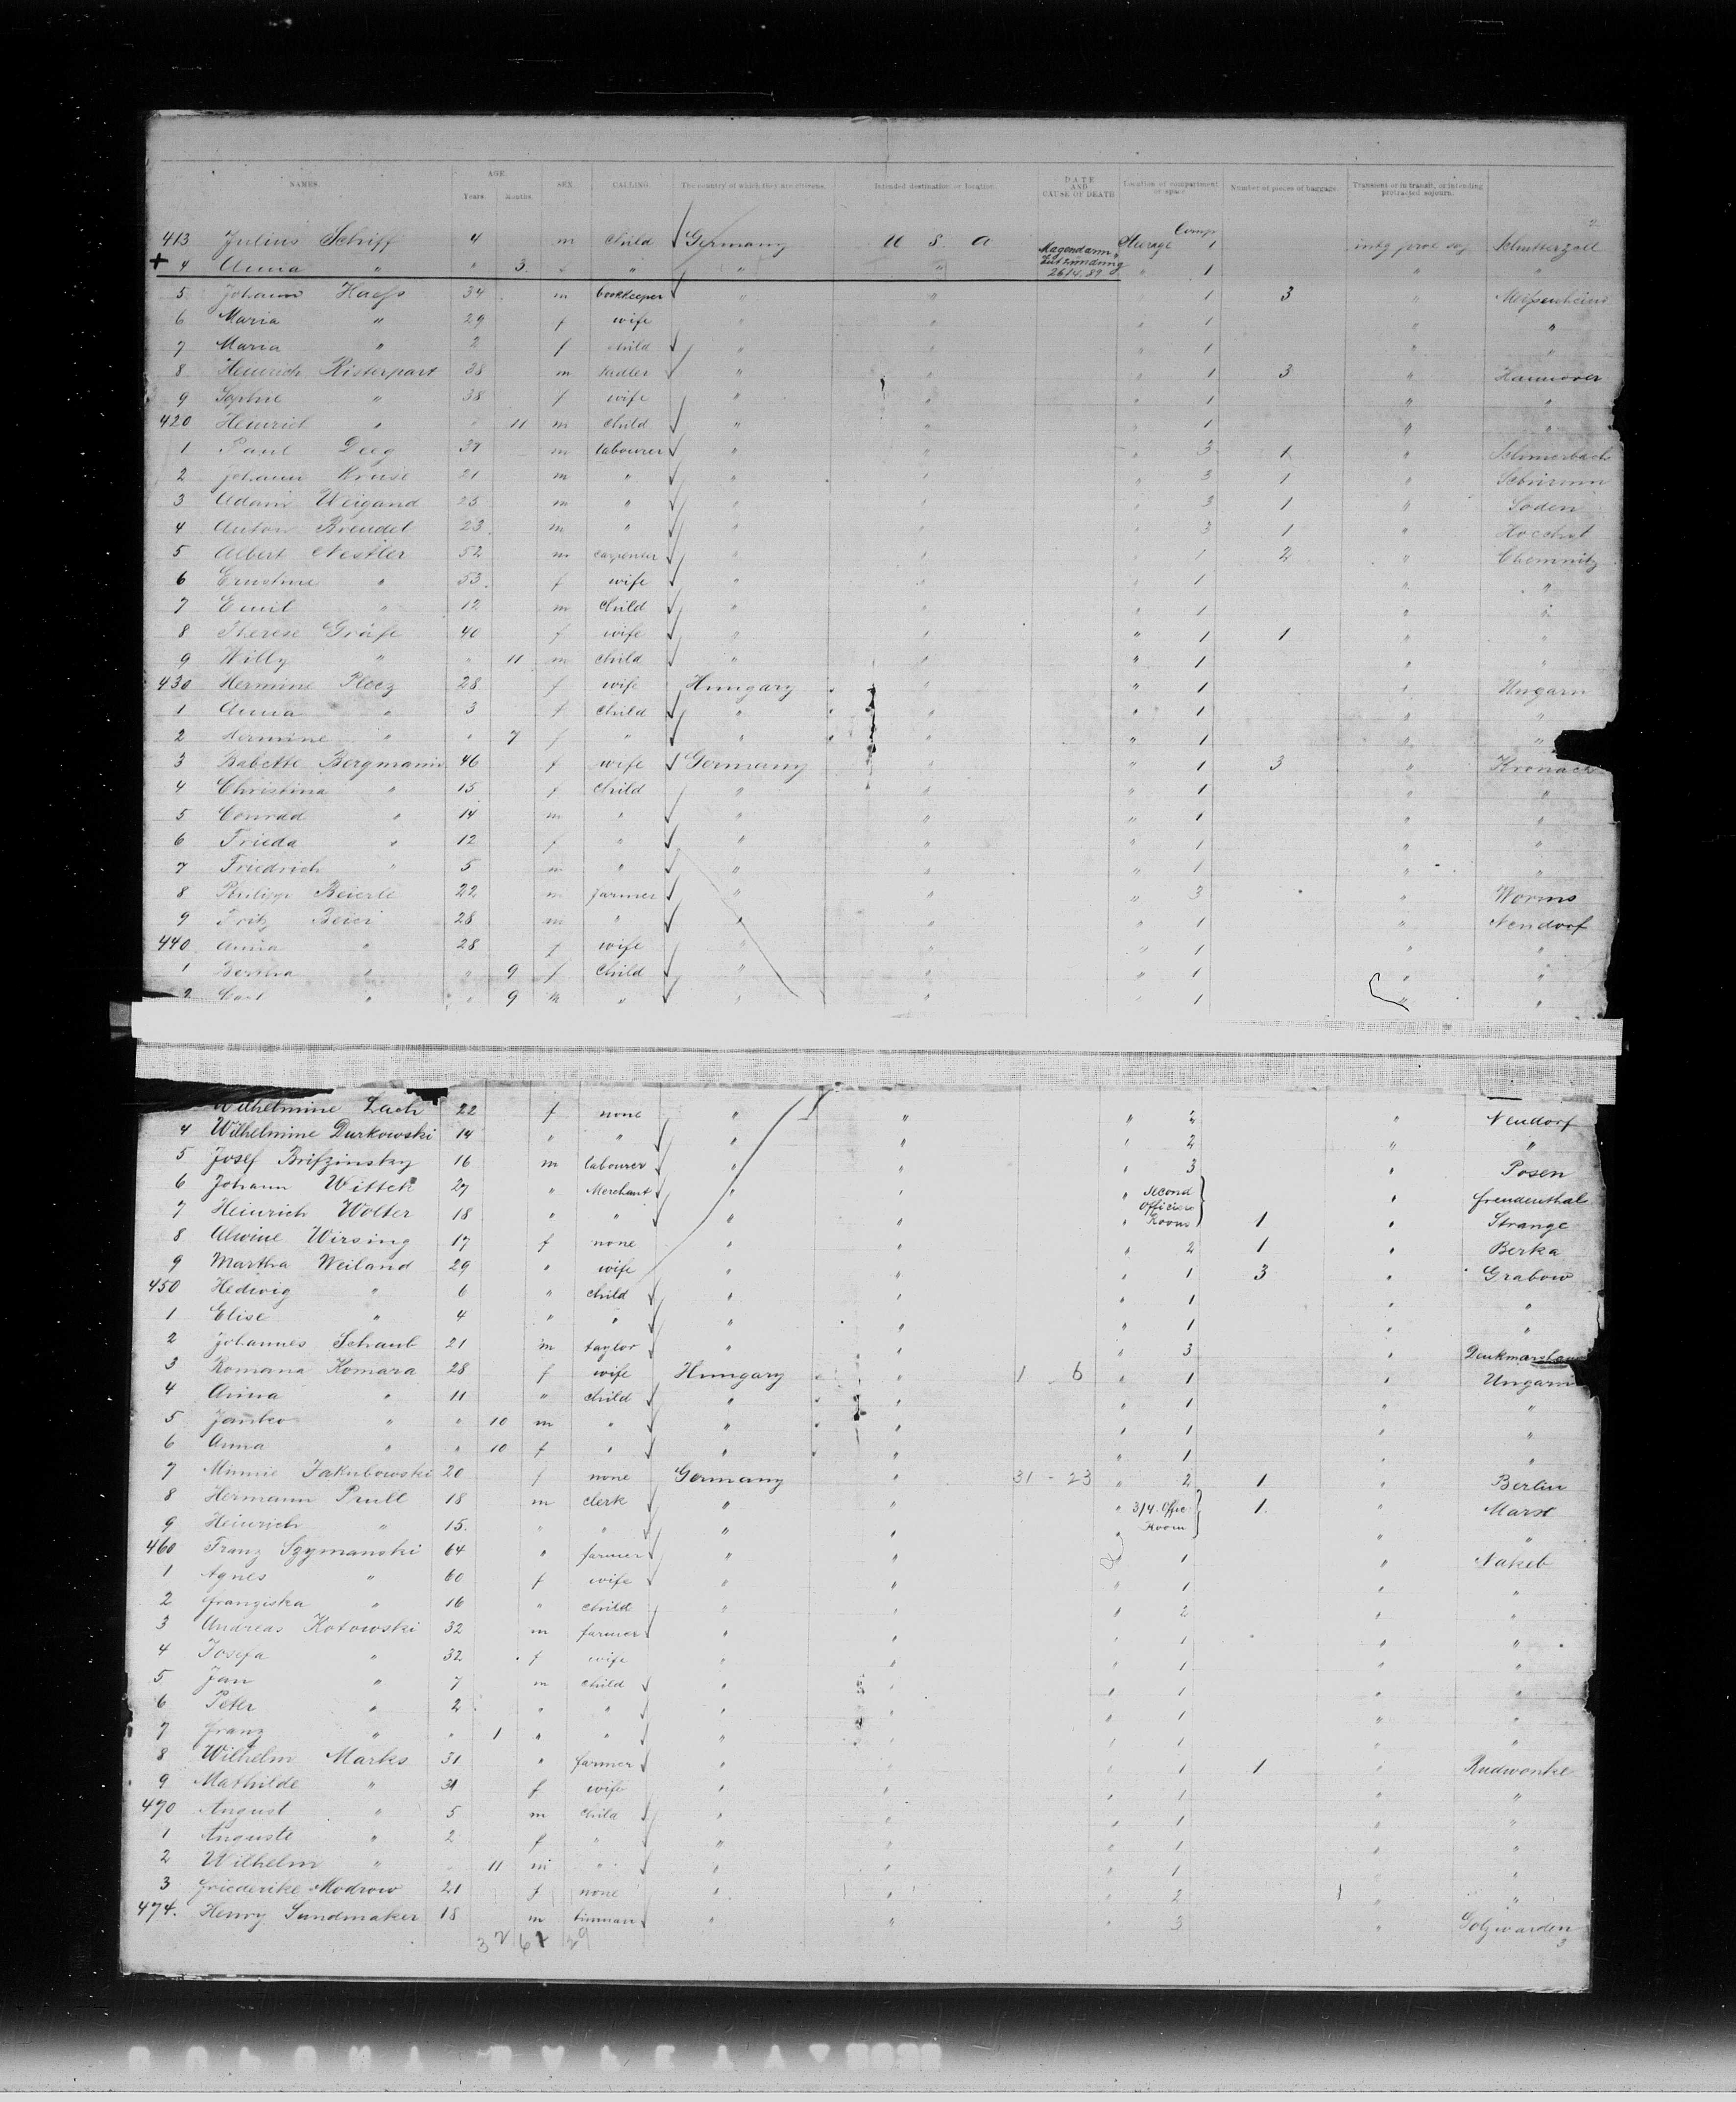 NAMES. AGE. Years. Months. SEX. CALLING. The country of which they are citizens. Intended destination or location. DATE AND CAUSE OF DEATH Location of compartment or space. Number of pieces of baggage. Transient or in transit, or intending protracted sojourn.
413 Julius Schiff 4 m child Germany U S A Steerage Comp 1
+ 4 Anna " " 3 f " " " 26/4.89 " 1 " "
5 Johann Haefs 34 m bookkeeper " " " 1 3 "
6 Maria " 29 f wife " " " 1 " "
7 Maria " 2 f child " " " 1 " "
8 Heinrich Risterpart 28 m " " " 1 3 " Hannover
9 Sophie " 38 f wife " " " 1 " "
420 Heinrich " " 11 m child " " " 1 " "
1 Paul Deeg 37 m labourer " " " 3 1 "
2 Johann Kruse 21 m " " " " 3 1 "
3 Adam Weigand 25 m " " " " 3 1 " Soden
4 Anton Breudel 23 m " " " " 3 1 " Hoechst
5 Albert Nestler 52 m carpenter " " " 1 2 " Chemnitz
6 Ernstine " 53 f wife " " " 1 " "
7 Emil " 12 m child " " " 1 " "
8 Therese Gräfe 40 f wife " " " 1 1 " "
9 Willy " " 11 m child " " " 1 " "
430 Hermine Plecz 28 f wife Hungary " " 1 " Ungarn
1 Anna " 3 f child " " " 1 " "
2 Hermine " " 7 f " " " " 1 " "
3 Babette Bergmann 46 f wife Germany " " 1 3 " Kronach
4 Christina " 15 f child " " " 1 " "
5 Conrad " 14 m " " " " 1 " "
6 Frieda " 12 f " " " " 1 " "
7 Friedrich " 5 m " " " " 1 " "
8 Philipp Beierle 22 m farmer " " " 3 " Worms
9 Fritz 28 m " " " " 1 " Nendorf
440 Anna " 28 f wife " " " 1 " "
1 Bertha " " 9 f child " " " 1 " "
2 Carl " " 9 m " " " " 1 " "
Wilhelmine Zach 22 f none " " " 2 " Nendorf
4 Wilhelmine Durkowski 14 " " " " " 2 " "
5 Josef Brifzinsky 16 m labourer " " " 3 " Posen
6 Johann Wittek 27 " Merchant " " " Second " Freudenthal
7 Heinrich Wolter 18 " " " " " Officiers Room 1 " Strange
8 Alwine Wirsing 17 f none " " " 2 1 " Berka
9 Martha Weiland 29 " wife " " " 1 3 " Grabow
450 Hedwig " 6 " child " " " 1 " "
1 Elise " 4 " " " " " 1 " "
2 Johannes Schaub 21 m taylor " " " 3 "
3 Romana Komara 28 f wife Hungary " 1 6 " 1 " Ungarn
4 Anna " 11 " child " " " 1 " "
5 Janko " " 10 m " " " " 1 " "
6 Anna " " 10 f " " " " 1 " "
7 Minnie Jakubowski 20 f none Germany " 31 - 23 " 2 1 " Berlin
8 Hermann Prull 18 m clerk " " " 3/4. Offic 1 " Marx
9 Heinrich " 15 " " " " " Room " "
460 Franz Szymanski 64 " farmer " " " 1 " Nakeb
1 Agnes " 60 f wife " " " 1 " "
2 Franziska " 16 " child " " " 2 " "
3 Andreas Kotowski 32 m farmer " " " 1 " "
4 Josefa " 32 f wife " " " 1 " "
5 Jan " 7 m child " " " 1 " "
6 Peter " 2 " " " " " 1 " "
7 Franz " " 1 " " " " " 1 " "
8 Wilhelm Marks 31 " farmer " " " 1 1 " Rudwonke
9 Mathilde " 31 f wife " " " 1 " "
470 August " 5 m child " " " 1 " "
1 Auguste " 2 f " " " " 1 " "
2 Wilhelm " " 11 m " " " " 1 " "
3 Friederike Modrow 21 f none " " " 2 " "
474. Henry Sundmaker 18 m tinman " " " 3 " Golzwarden